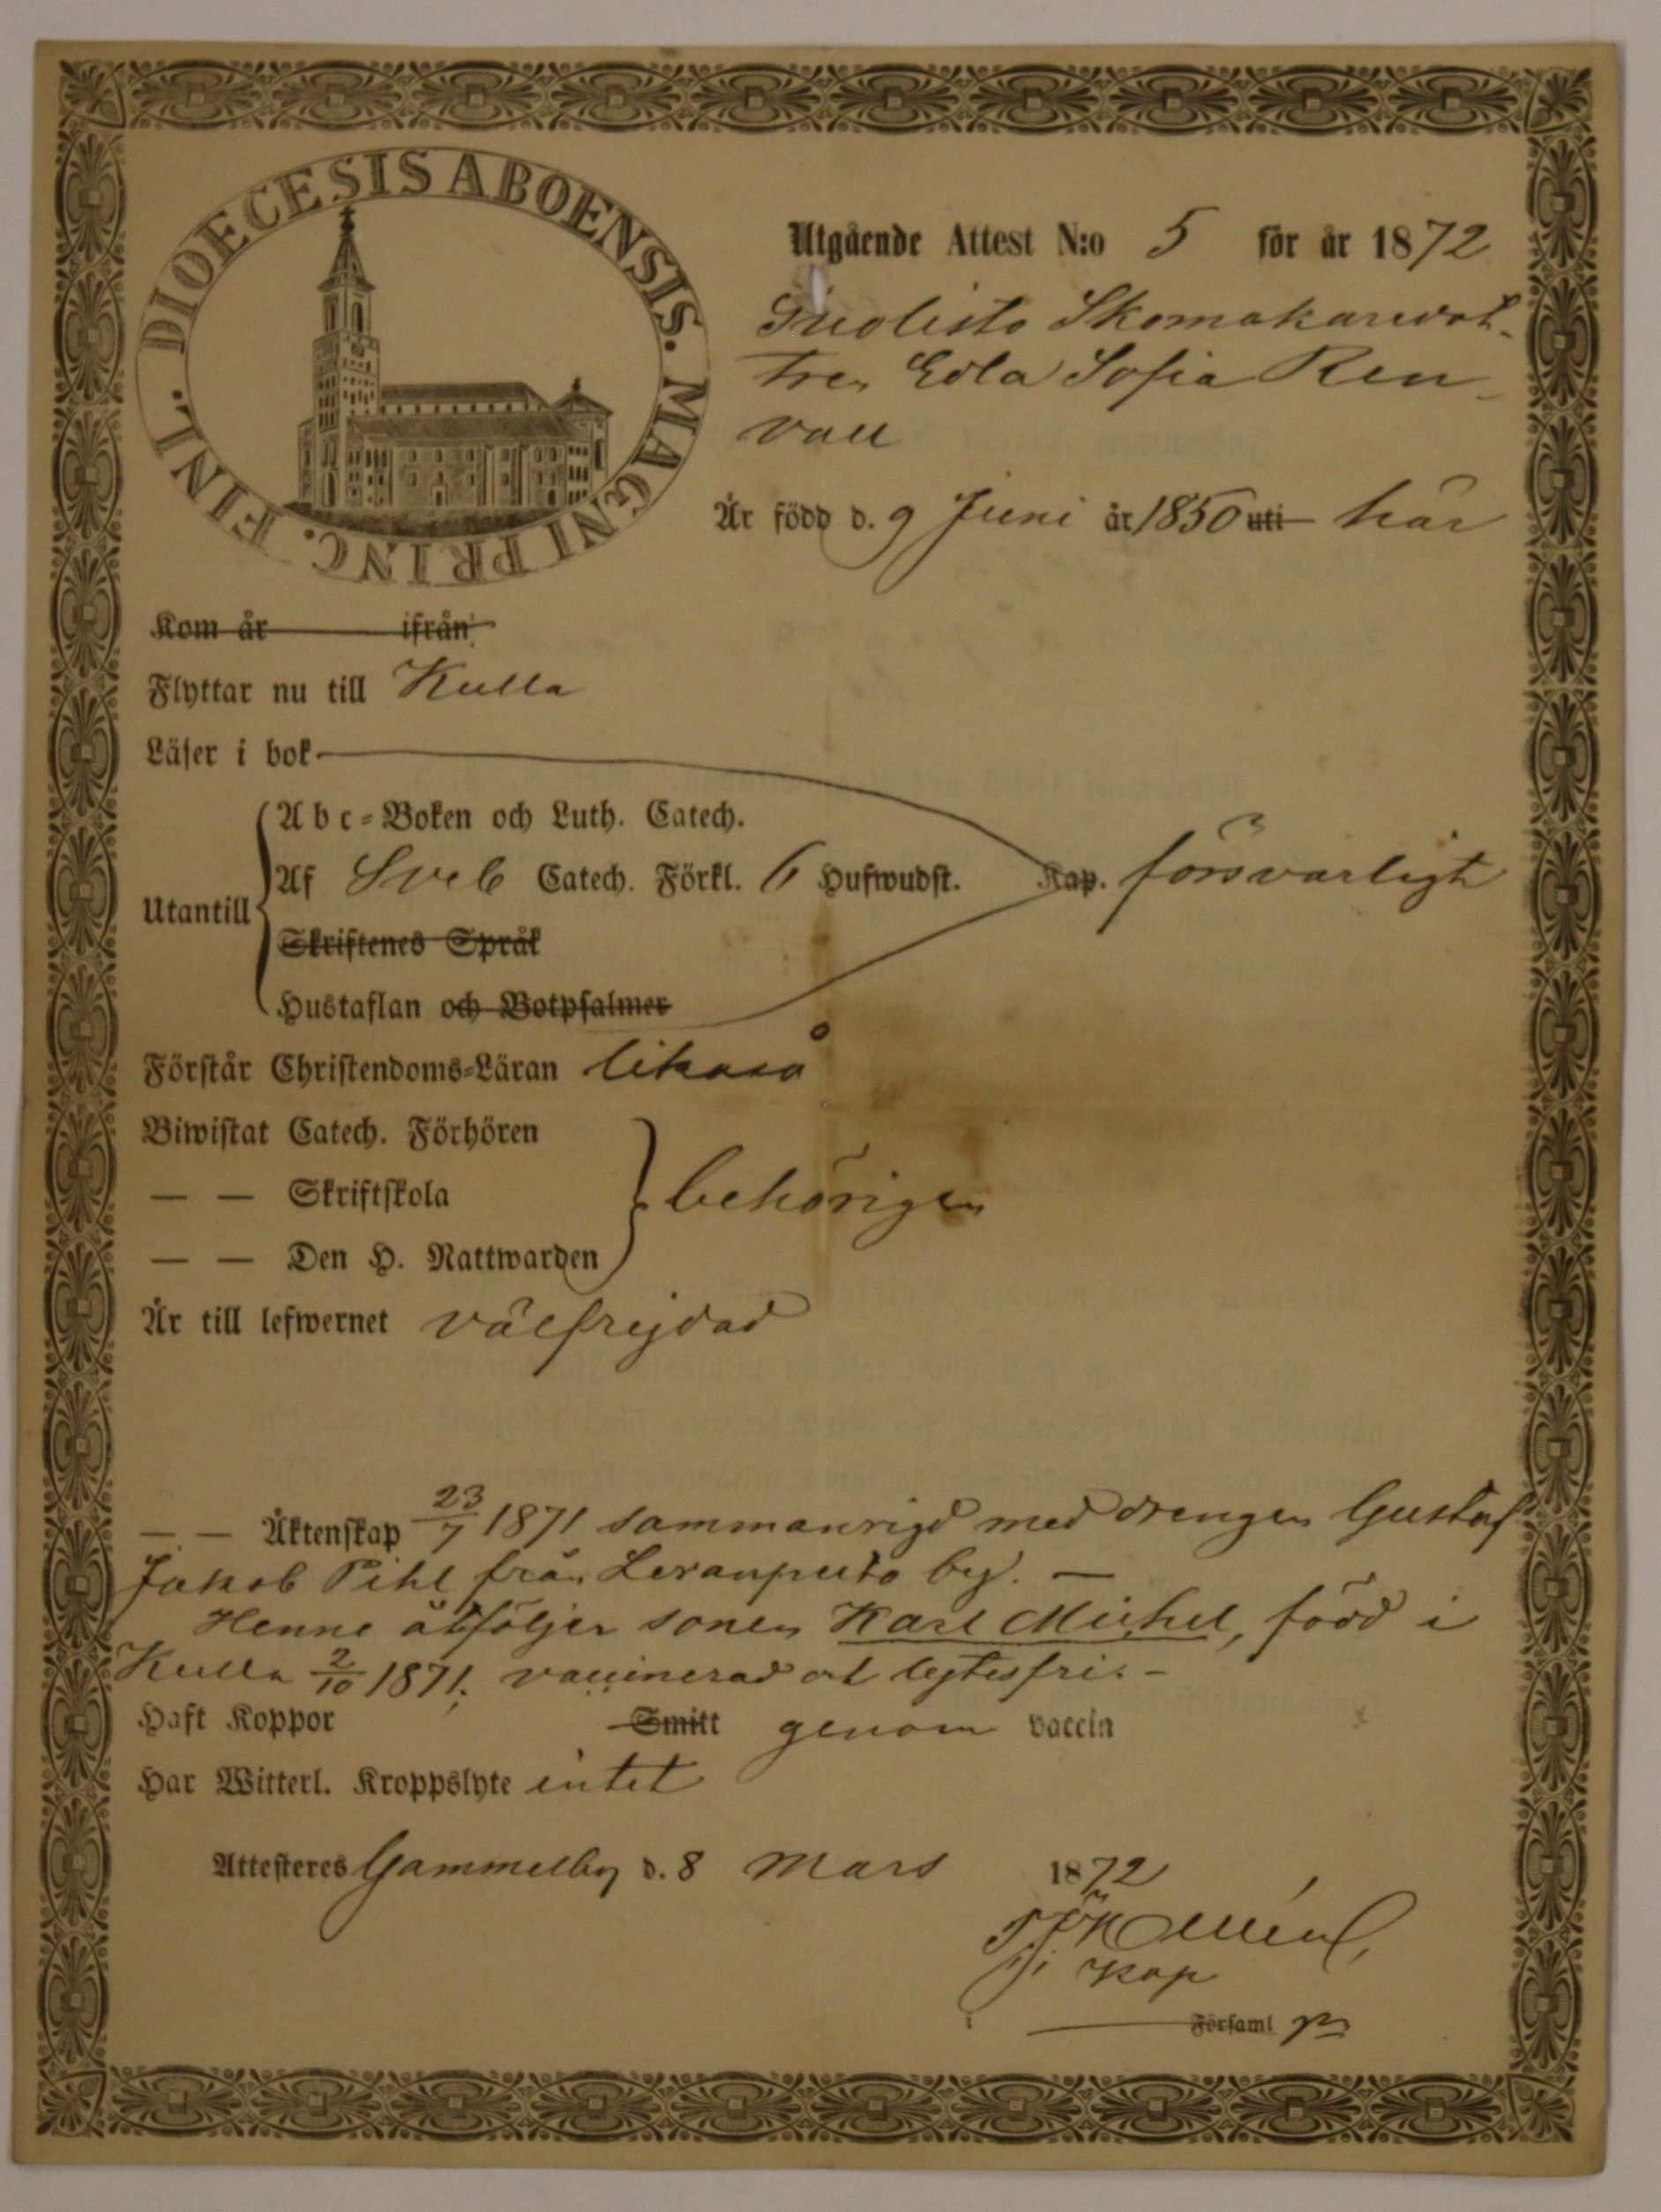 DIOECESIS ABOENSIS. MAGNI PRINC. FINL.
Utgående Attest N:o 5 för år 1872
Skomakaredot-
tren Edla Sofia Ren-
vall
Är född d. 9 Juni år 1850 uti här
Kom år ifrån
Flyttar nu till Kulla
Läser i bok
Abc-Boken och Luth. Catech.
Utantill Af Sveb Catech. Förkl. 6 Hufwudst. Kap. försvarligt
Skriftenes Språk
Hustaflan och Botpsalmer
Förstår Christendoms-Läran likaså
Biwistat Catech. Förhören
— — Skriftskola behörigen
— — Den H. Nattwarden
Är till lefwernet välfrejdad
— — Äktenskap 23/7 1871 sammanvigd med drengen Gustaf
Jakob Pihl från Levanpelto by. —
Henne åtföljer sonen Karl Michel, född i
Kulla 2/10 1871; vaccinerad och lytesfri. –
Haft Koppor Smitt genom vaccin
Har Witterl. Kroppslyte intet
Attesteres Gammelby d. 8 Mars 1872
Kap
Församl